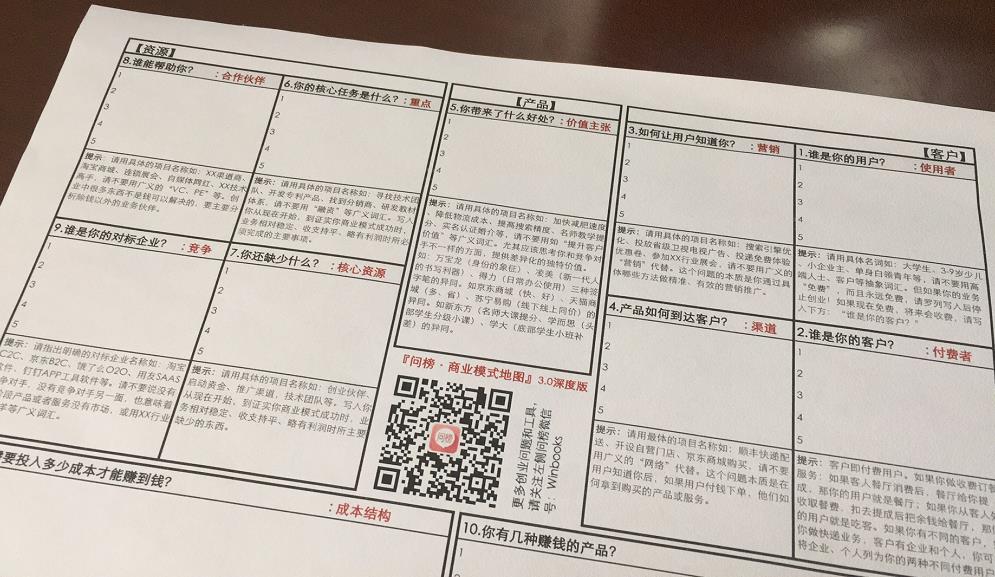 【资源】
8.谁能帮助你？ ：合作伙伴
1
2
3
4
5
提示：请用具体的项目名称如：XX渠道商、
淘宝商城、连锁展会、自媒体网红、XX技术
高手，请不要用广义的“VC、PE”等。创
业中很多东西不是钱可以解决的，要主要分
析除钱以外的业务伙伴。
6.你的核心任务是什么？：重点
1
2
3
4
5
提示：请用具体的项目名称如：寻找技术团
队、开发专利产品、找到分销商、研发教材
体系，请不要用“融资”等广义词汇。写入
你从现在开始，到证实你商业模式成功时，
业务相对稳定、收支持平、略有利润时所必
须完成的主要事项。
9.谁是你的对标企业？ ：竞争
1
2
3
4
5
提示：请指出明确的对标企业名称如：淘宝
C2C、京东B2C、饿了么O2O、用友SAAS
软件、钉钉APP工具软件等。请不要说没有
争对手，没有竞争对手另一面，也意味着
阶段产品或者服务没有市场，或用XX行业
羊等广义词汇。
7.你还缺少什么？ ：核心资源
1
2
3
4
5
提示：请用具体的项目名称如：创业伙伴、
启动资金、推广渠道，技术团队等。写入你
从现在开始，到证实你商业模式成功时，业
务相对稳定、收支持平、略有利润时所主要
缺少的东西。
【产品】
5.你带来了什么好处？：价值主张
1
2
3
4
5
提示：请用具体的项目名称如：加快减肥速度
、降低物流成本、提高搜索精度、名师教学提
分、实名认证婚介等，请不要用如“提升客户
价值”等广义词汇。尤其应该思考你和竞争对
手不一样的方面，提供差异化的独特价值。
如：万宝龙（身份的象征）、凌美（新一代人
的书写利器）、得力（日常办公使用）三种签
字笔的异同。如京东商城（快、好）、天猫商
城（多、省）、苏宁易购（线下线上同价）的
异同。如新东方（名师大课提分、学而思（头
部学生分级小课）、学大（底部学生小班补
差）的异同。
『问榜·商业模式地图』3.0深度版
问榜
更多创业问题和工具，
请关注左侧问榜微信
号：Winbooks
【客户】
3.如何让用户知道你？ ：营销
1
2
3
4
5
提示：请用具体的项目名称如：搜索引擎优
化、投放省级卫视电视广告、投递免费体验
优惠卷、参加XX行业展会，请不要用广义的
“营销”代替。这个问题的本质是你通过具
体哪些方法做精准、有效的营销推广。
1.谁是你的用户？ ：使用者
1
2
3
4
5
提示：请用具体名词如：大学生、3-9岁少儿
、小企业主、单身白领青年等，请不要用高
端人士、客户等抽象词汇。但如果你的业务
“免费”，而且永远免费，请罗列写入后停
止创业！如果现在免费，将来会收费，请写
入下方：“谁是你的客户？”
4.产品如何到达客户？ ：渠道
1
2
3
4
5
提示：请用最体的项目名称如：顺丰快递配
送、开设自营门店、京东商城购买，请不要
用广义的“网络”代替。这个问题本质是在
用户知道你后，如果用户付钱下单，他们如
何拿到购买的产品或服务。
2.谁是你的客户？ ：付费者
1
2
3
4
5
提示：客户即付费用户。如果你做收费订餐
服务：如果客人餐厅消费后，餐厅给你提
成，那你的用户就是餐厅；如果你从客人
收取餐费，扣去提成后把余钱给餐厅，那
的用户就是吃客。如果你有不同的客户，
你做快递业务，客户有企业和个人，你可
将企业、个人列为你的两种不同付费用户
要投入多少成本才能赚到钱？
：成本结构
10.你有几种赚钱的产品？
1